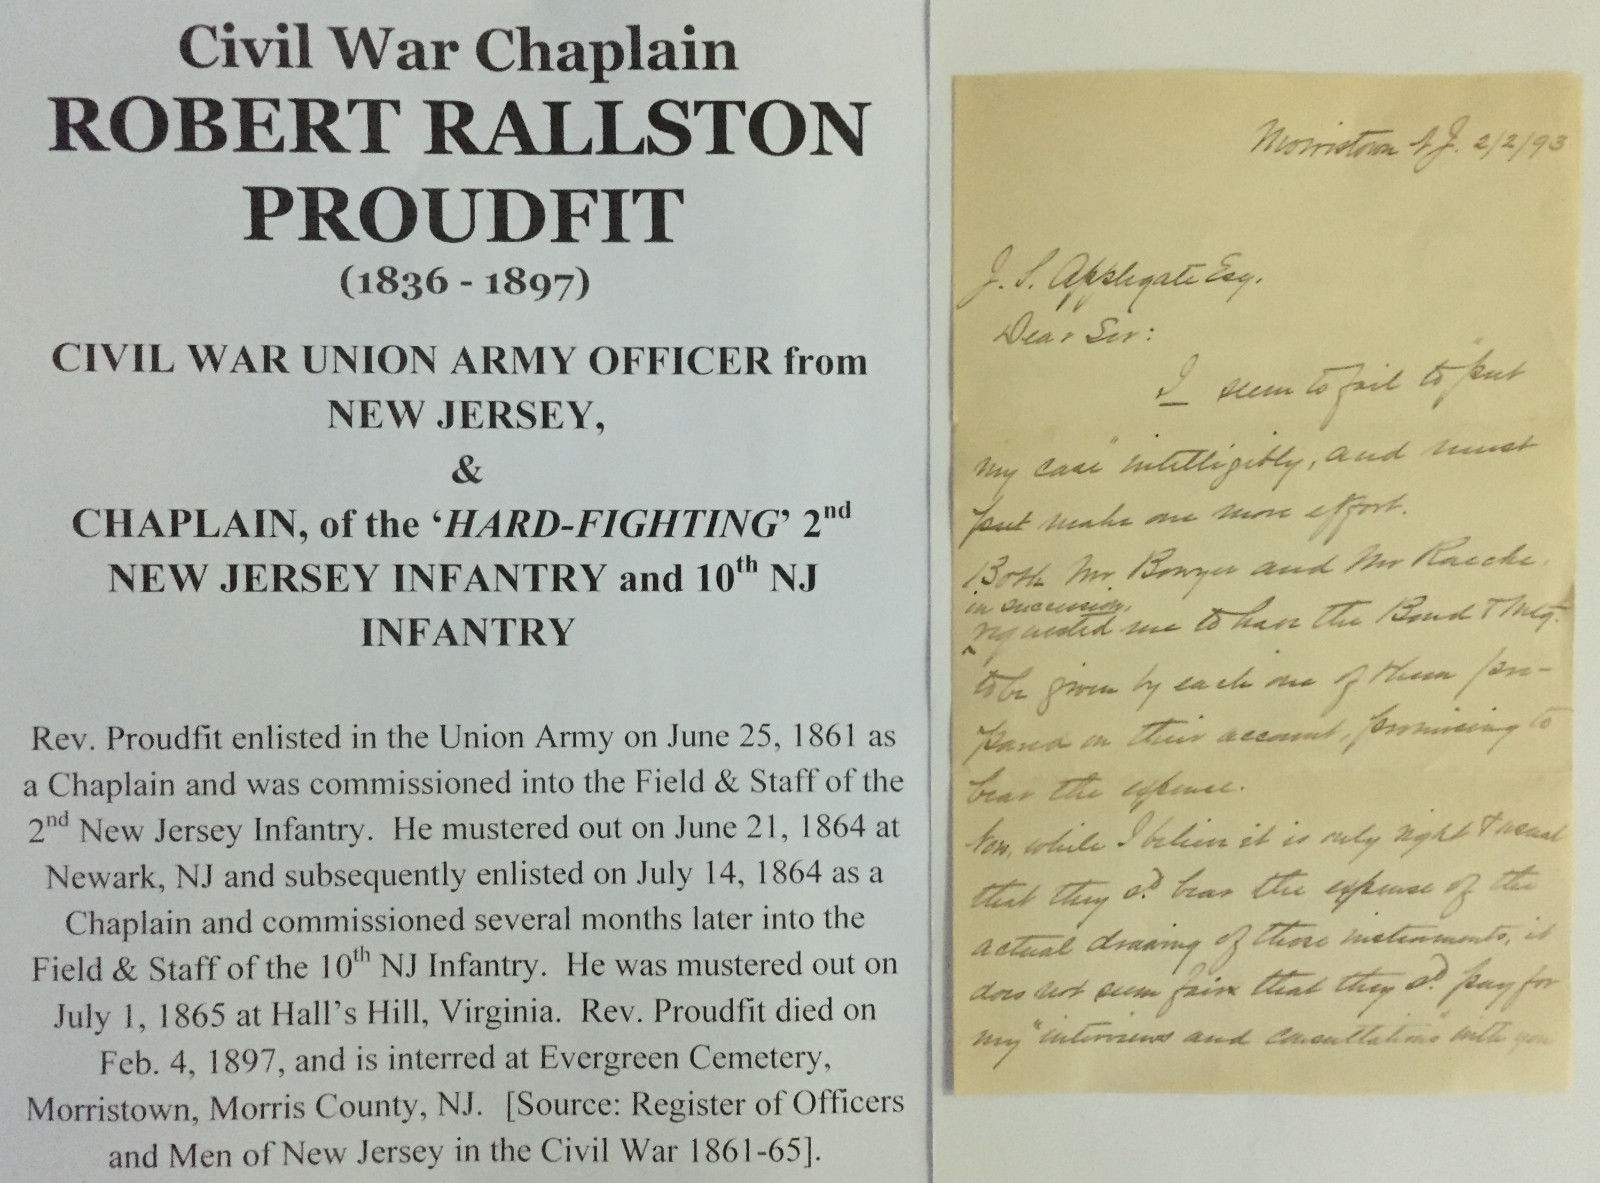 Civil War Chaplain
ROBERT RALLSTON
PROUDFIT
(1836 - 1897)
CIVIL WAR UNION ARMY OFFICER from
NEW JERSEY,
&
CHAPLAIN, of the ‘HARD-FIGHTING’ 2nd
NEW JERSEY INFANTRY and 10th NJ
INFANTRY
Rev. Proudfit enlisted in the Union Army on June 25, 1861 as
a Chaplain and was commissioned into the Field & Staff of the
2nd New Jersey Infantry. He mustered out on June 21, 1864 at
Newark, NJ and subsequently enlisted on July 14, 1864 as a
Chaplain and commissioned several months later into the
Field & Staff of the 10th NJ Infantry. He was mustered out on
July 1, 1865 at Hall’s Hill, Virginia. Rev. Proudfit died on
Feb. 4, 1897, and is interred at Evergreen Cemetery,
Morristown, Morris County, NJ. [Source: Register of Officers
and Men of New Jersey in the Civil War 1861-65].
Morristown N.J. 2/2/93
J. S. Applegate Esq.
Dear Sir:
I seem to fail to "put
my case" intelligibly, and must
put make one more effort.
Both Mr Bowyer and Mr
in succession,
requested me to have the Bond & Mtg.
to be given by each one of them pre-
pared on their account, promising to
bear the expense.
Now, while I believe it is only right & usual
that they sd. bear the expense of the
actual drawing of those instruments, it
does not seem fair that they sd. pay for
my "interviews and consultations" with you